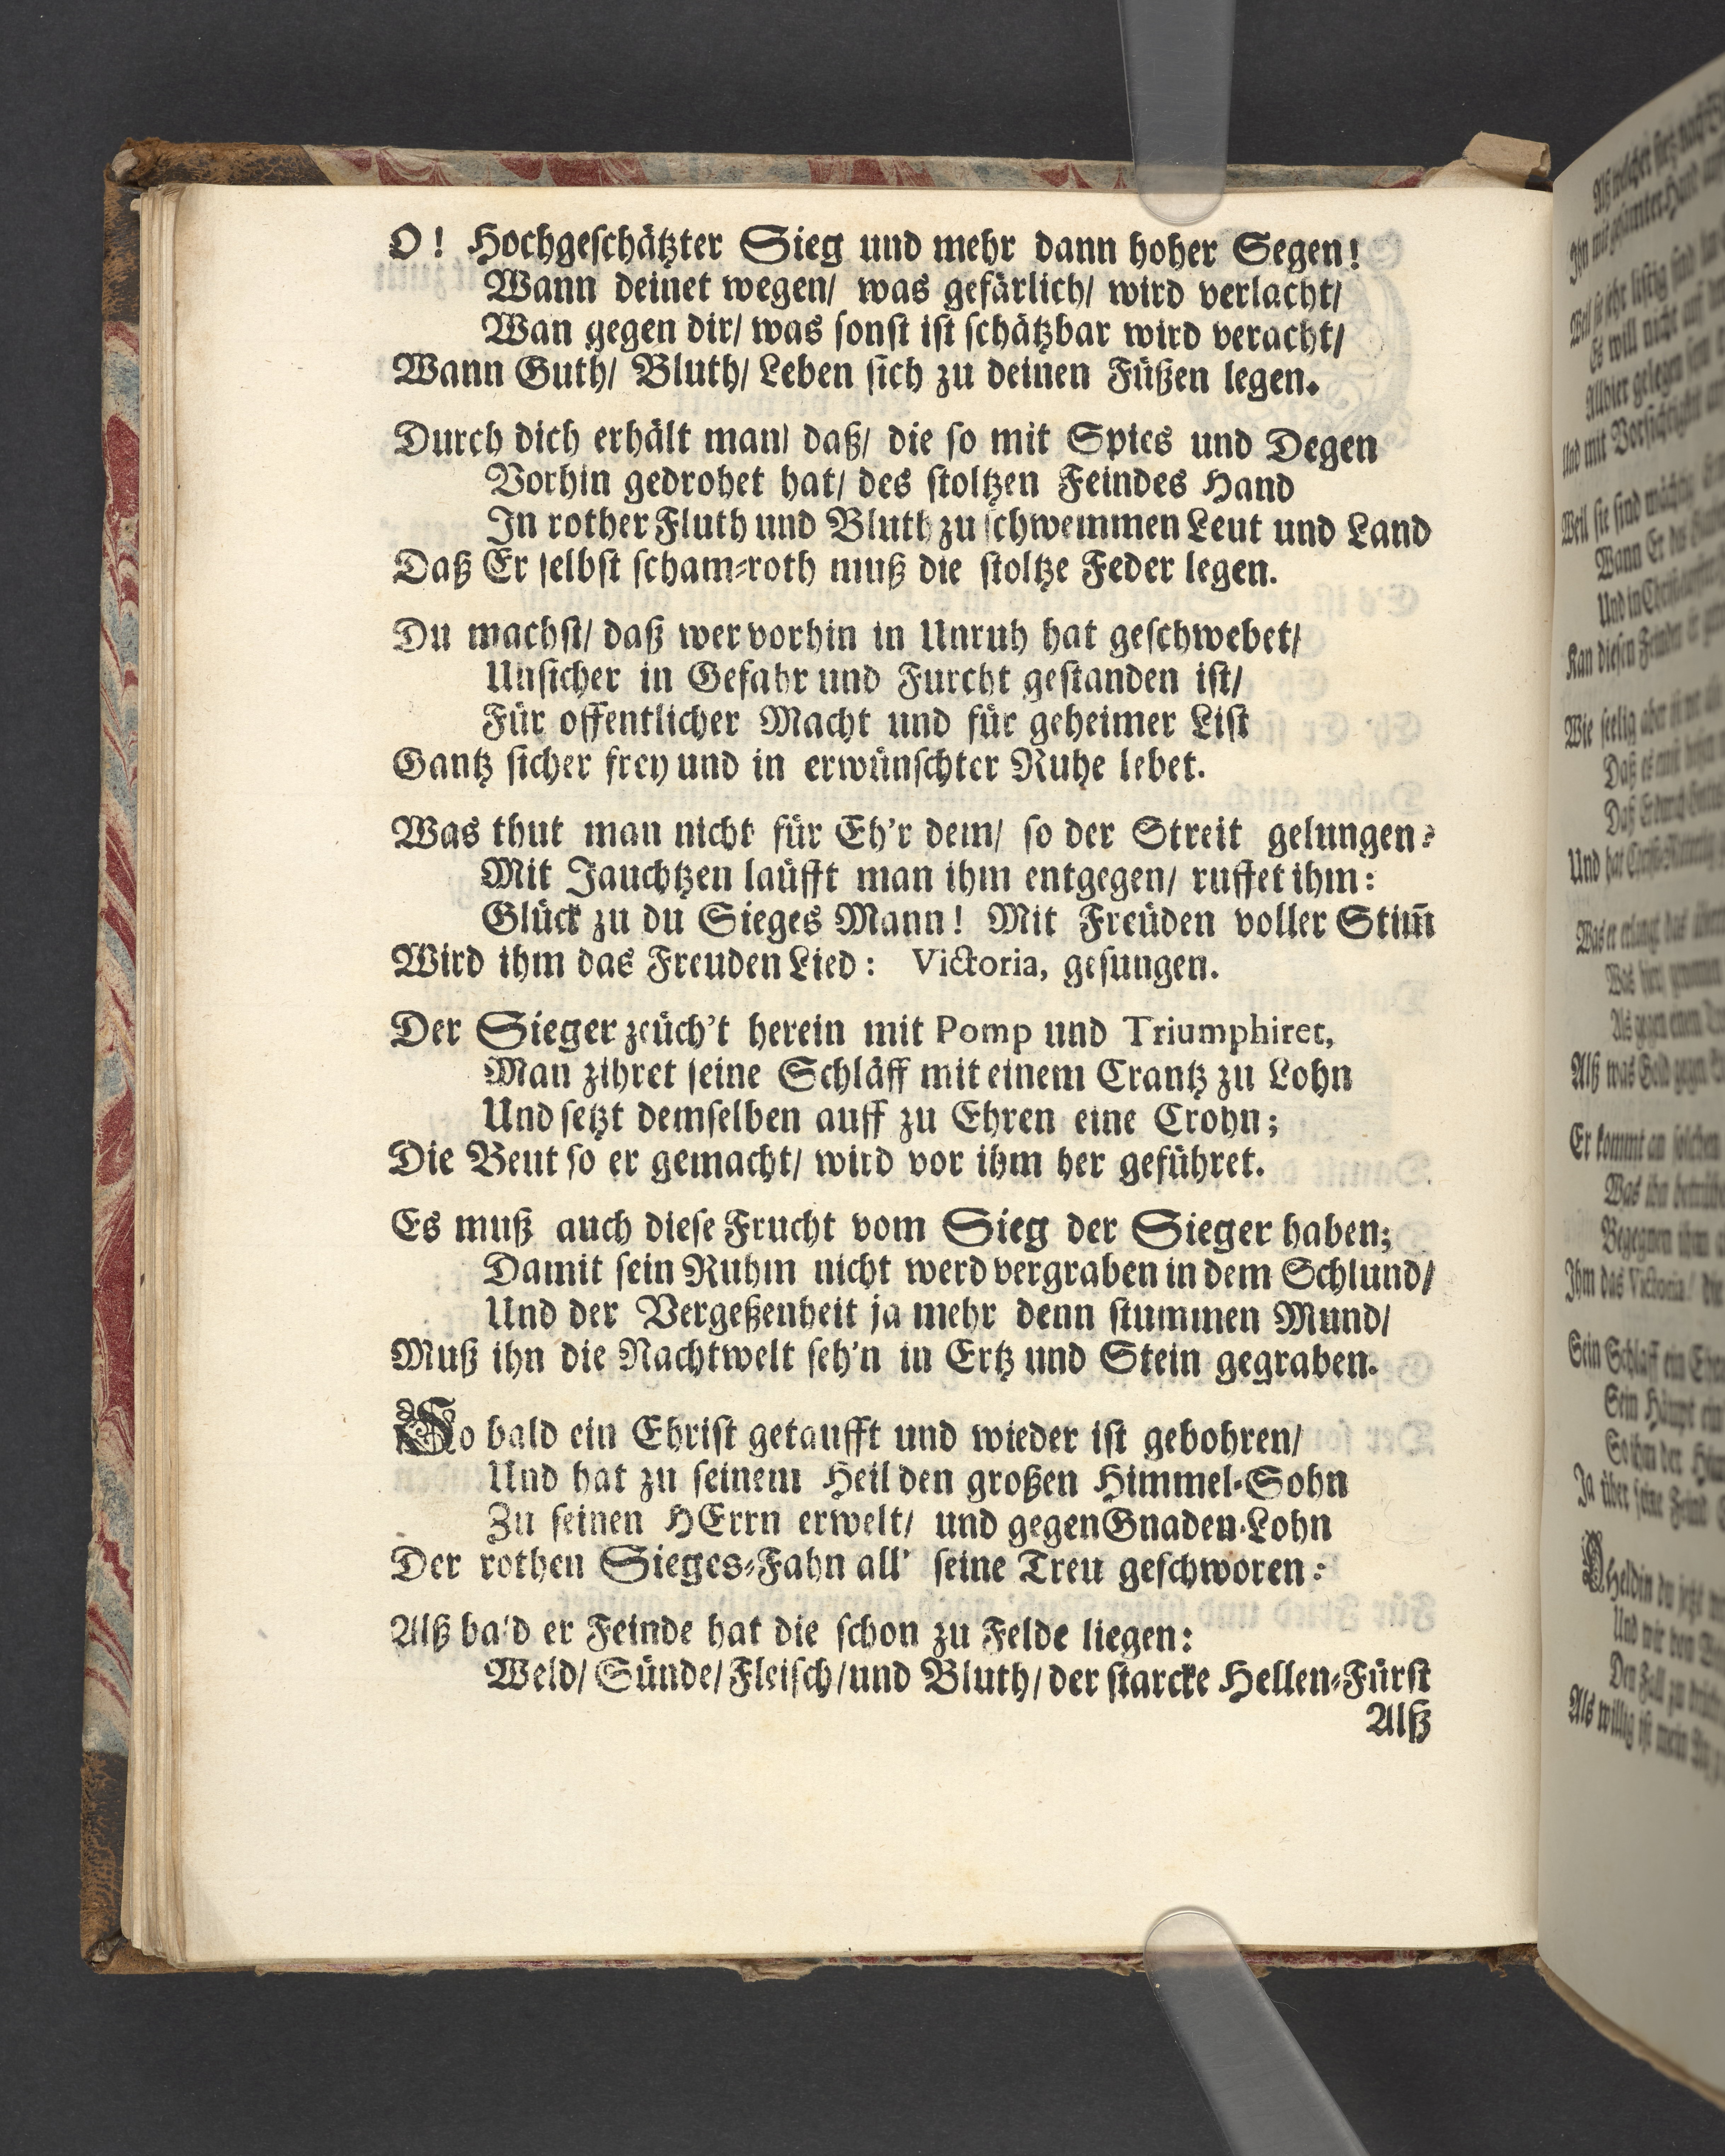 O! Hochgeschätzter Sieg und mehr dann hoher Segen!
Wann deinet wegen/ was gefärlich/ wird verlacht/
Wan gegen dir/ was sonst ist schätzbar wird veracht/
Wann Guth/ Bluth/ Leben sich zu deinen Füßen legen.
Durch dich erhält man/ daß/ die so mit Spies und Degen
Vorhin gedrohet hat/ des stoltzen Feindes Hand
In rother Fluth und Bluth zu schwemmen Leut und Land
Daß Er selbst scham-roth muß die stoltze Feder legen.
Du machst/ daß wer vorhin in Unruh hat geschwebet/
Unsicher in Gefahr und Furcht gestanden ist/
Für offentlicher Macht und für geheimer List
Gantz sicher frey und in erwünschter Ruhe lebet.
Was thut man nicht für Eh'r dem/ so der Streit gelungen?
Mit Jauchtzen laüfft man ihm entgegen/ ruffet ihm:
Glück zu du Sieges Mann! Mit Freüden voller Stim̄
Wird ihm das Freuden Lied: Victoria, gesungen.
Der Sieger zeüch't herein mit Pomp und Triumphiret,
Man zihret seine Schläff mit einem Crantz zu Lohn
Und setzt demselben auff zu Ehren eine Crohn;
Die Beut so er gemacht/ wird vor ihm her geführet.
Es muß auch diese Frucht vom Sieg der Sieger haben;
Damit sein Ruhm nicht werd vergraben in dem Schlund/
Und der Vergeßenheit ja mehr denn stummen Mund/
Muß ihn die Nachtwelt seh'n in Ertz und Stein gegraben.
So bald ein Christ getaufft und wieder ist gebohren/
Und hat zu seinem Heil den großen Himmel-Sohn
Zu seinen HErrn erwelt/ und gegen Gnaden-Lohn
Der rothen Sieges-Fahn all' seine Treu geschworen:
Alß bald er Feinde hat die schon zu Felde liegen:
Weld/ Sünde/ Fleisch/ und Bluth/ der starcke Hellen-Fürst
Alß